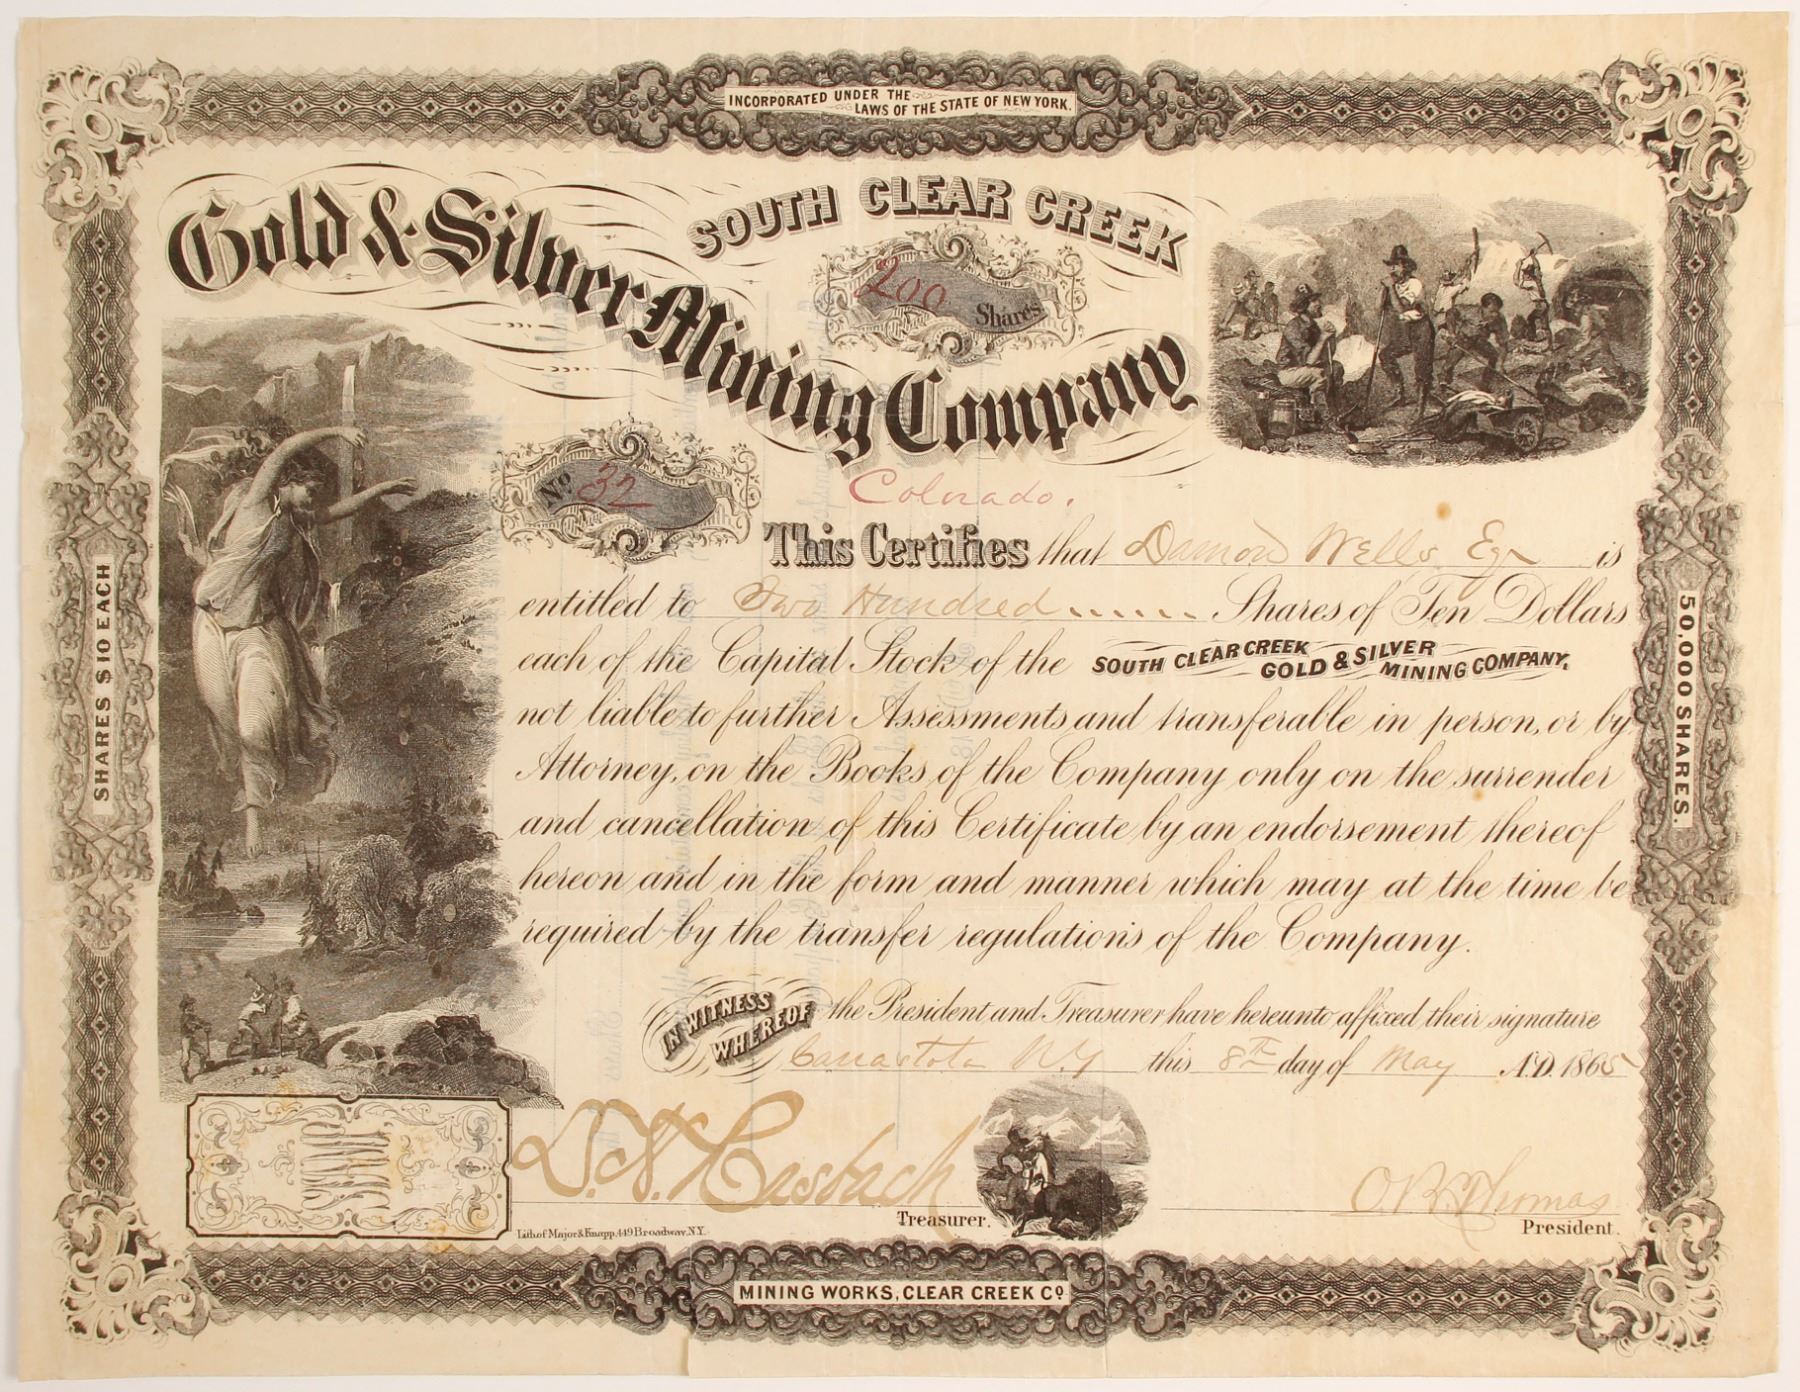 INCORPORATED UNDER THE
LAWS OF THE STATE OF NEW YORK.
SOUTH CLEAR CREEK
Gold & Silver Mining Company
200 Shares
No. 32
Colorado.
This Certifies that Damon Wells Esqr is
entitled to Two Hundred Shares of Ten Dollars
each of the Capital Stock of the SOUTH CLEAR CREEK GOLD & SILVER MINING COMPANY,
not liable to further Assessments and transferable in person, or by
Attorney, on the Books of the Company only on the surrender
and cancellation of this Certificate by an endorsement thereof
hereon and in the form and manner which may at the time be
required by the transfer regulations of the Company.
IN WITNESS WHEREOF the President and Treasurer have hereunto affixed their signature
Canastota N.Y this 8th day of May A.D. 1865
Treasurer.
Thomas
President.
Lith. of Major & Knapp, 449 Broadway, N.Y.
SHARES $10 EACH
50,000 SHARES.
MINING WORKS, CLEAR CREEK Co.